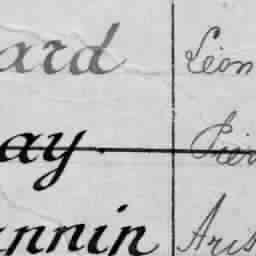 ard Léon
ay. Pier
nnin Aris